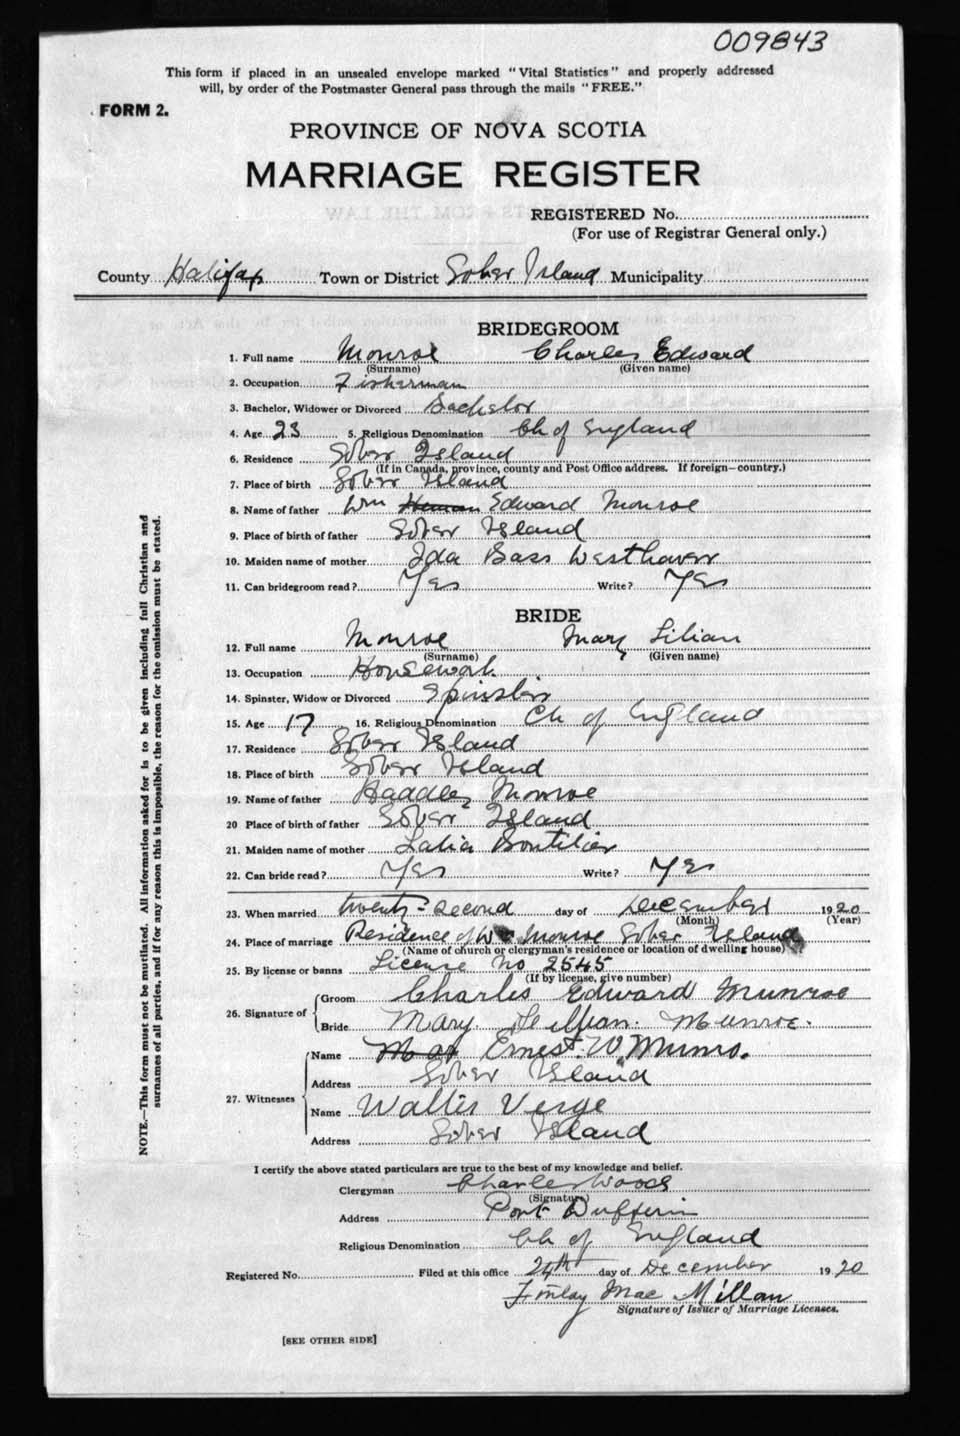 009843
This form if placed in an unsealed envelope marked "Vital Statistics" and properly addressed
will, by order of the Postmaster General pass through the mails "FREE."
FORM 2.
PROVINCE OF NOVA SCOTIA
MARRIAGE REGISTER
REGISTERED No.
(For use of Registrar General only.)
County Halifax Town or District Sober Island Municipality
BRIDEGROOM
1. Full name Monroe Charles Edward
(Surname) (Given name)
2. Occupation Fisherman
3. Bachelor, Widower or Divorced Bachelor
4. Age 23 5. Religious Denomination Ch of England
6. Residence Sober Island
(If in Canada, province, county and Post Office address. If foreign—country.)
7. Place of birth Sober Island
8. Name of father Wm Edward Monroe
9. Place of birth of father Sober Island
10. Maiden name of mother Ida Bass Westhaver
11. Can bridegroom read? Yes Write? Yes
BRIDE
12. Full name Monroe Mary Lilian
(Surname) (Given name)
13. Occupation Housework
14. Spinster, Widow or Divorced Spinster
15. Age 17 16. Religious Denomination Ch of England
17. Residence Sober Island
18. Place of birth Sober Island
19. Name of father Haddley Monroe
20 Place of birth of father Sober Island
21. Maiden name of mother Boutilier
22. Can bride read? Yes Write? Yes
23. When married twenty-second day of December 1920
(Month) (Year)
24. Place of marriage Residence of Monroe Sober Island
(Name of church or clergyman's residence or location of dwelling house)
25. By license or banns License No 2545
(If by license, give number)
26. Signature of
Groom Charles Edward Munroe
Bride Mary Lillian. Munroe.
27. Witnesses
Name Ernest. W. Munro.
Address Sober Island
Name Walter Verge
Address Sober Island
I certify the above stated particulars are true to the best of my knowledge and belief.
Clergyman Charles Wood
(Signature)
Address Port Dufferin
Religious Denomination Ch of England
Registered No. Filed at this office 24th day of December 1920
Finlay Mac Millan
Signature of Issuer of Marriage Licenses.
[SEE OTHER SIDE]
NOTE.—This form must not be mutilated. All information asked for is to be given including full Christian and
surnames of all parties, and if for any reason this is impossible, the reason for the omission must be stated.